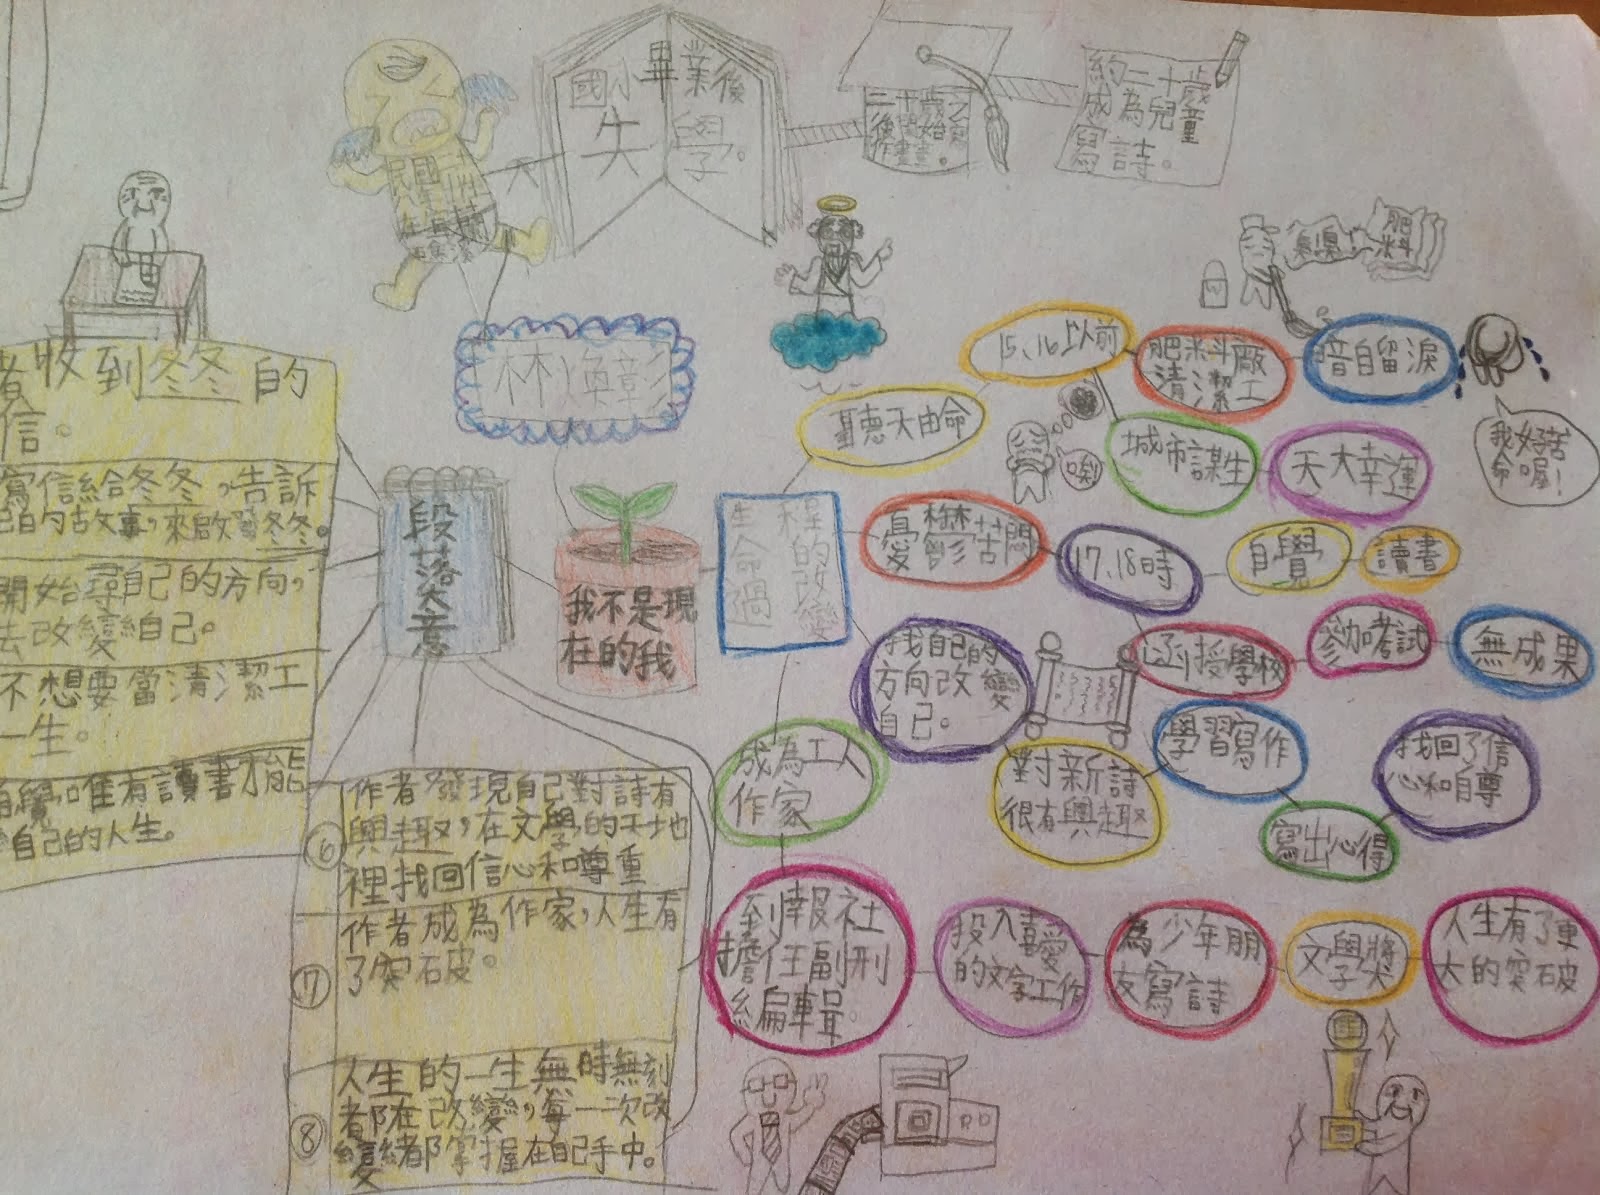 國小畢業後
失學。
二十歲之
後開始寫
作畫畫。
約二十歲
成為兒童
寫詩。
民國
林煥彰
我不是現
在的我
段落大意
收到冬冬的
信。
寫信給冬冬,告訴
自己的故事,來啟發冬冬。
開始尋自己的方向,
去改變自己。
不想要當清潔工
一生。
自覺唯有讀書才能
自己的人生。
⑥
作者發現自己對詩有
興趣,在文學的天地
裡找回信心和尊重
⑦
作者成為作家,人生有
了突破。
⑧
人生的一生無時無刻
都在改變,每一次改
變緒都掌握在自己手中。
生命過
程的改變
聽天由命
15、16以前
肥料廠
清潔工
暗自留淚
臭臭
肥料
我好苦
命喔!
城市謀生
天大幸運
唉
憂鬱苦悶
17、18時
自覺
讀書
函授學校
參加考試
無成果
找自己的
方向改變
自己。
對新詩
很有興趣
學習寫作
寫出心得
找回了信
心和自尊
成為工人
作家
到報社
擔任副刊
編輯。
投入喜愛
的文字工作
為少年朋
友寫詩
文學獎
人生有了更
大的突破